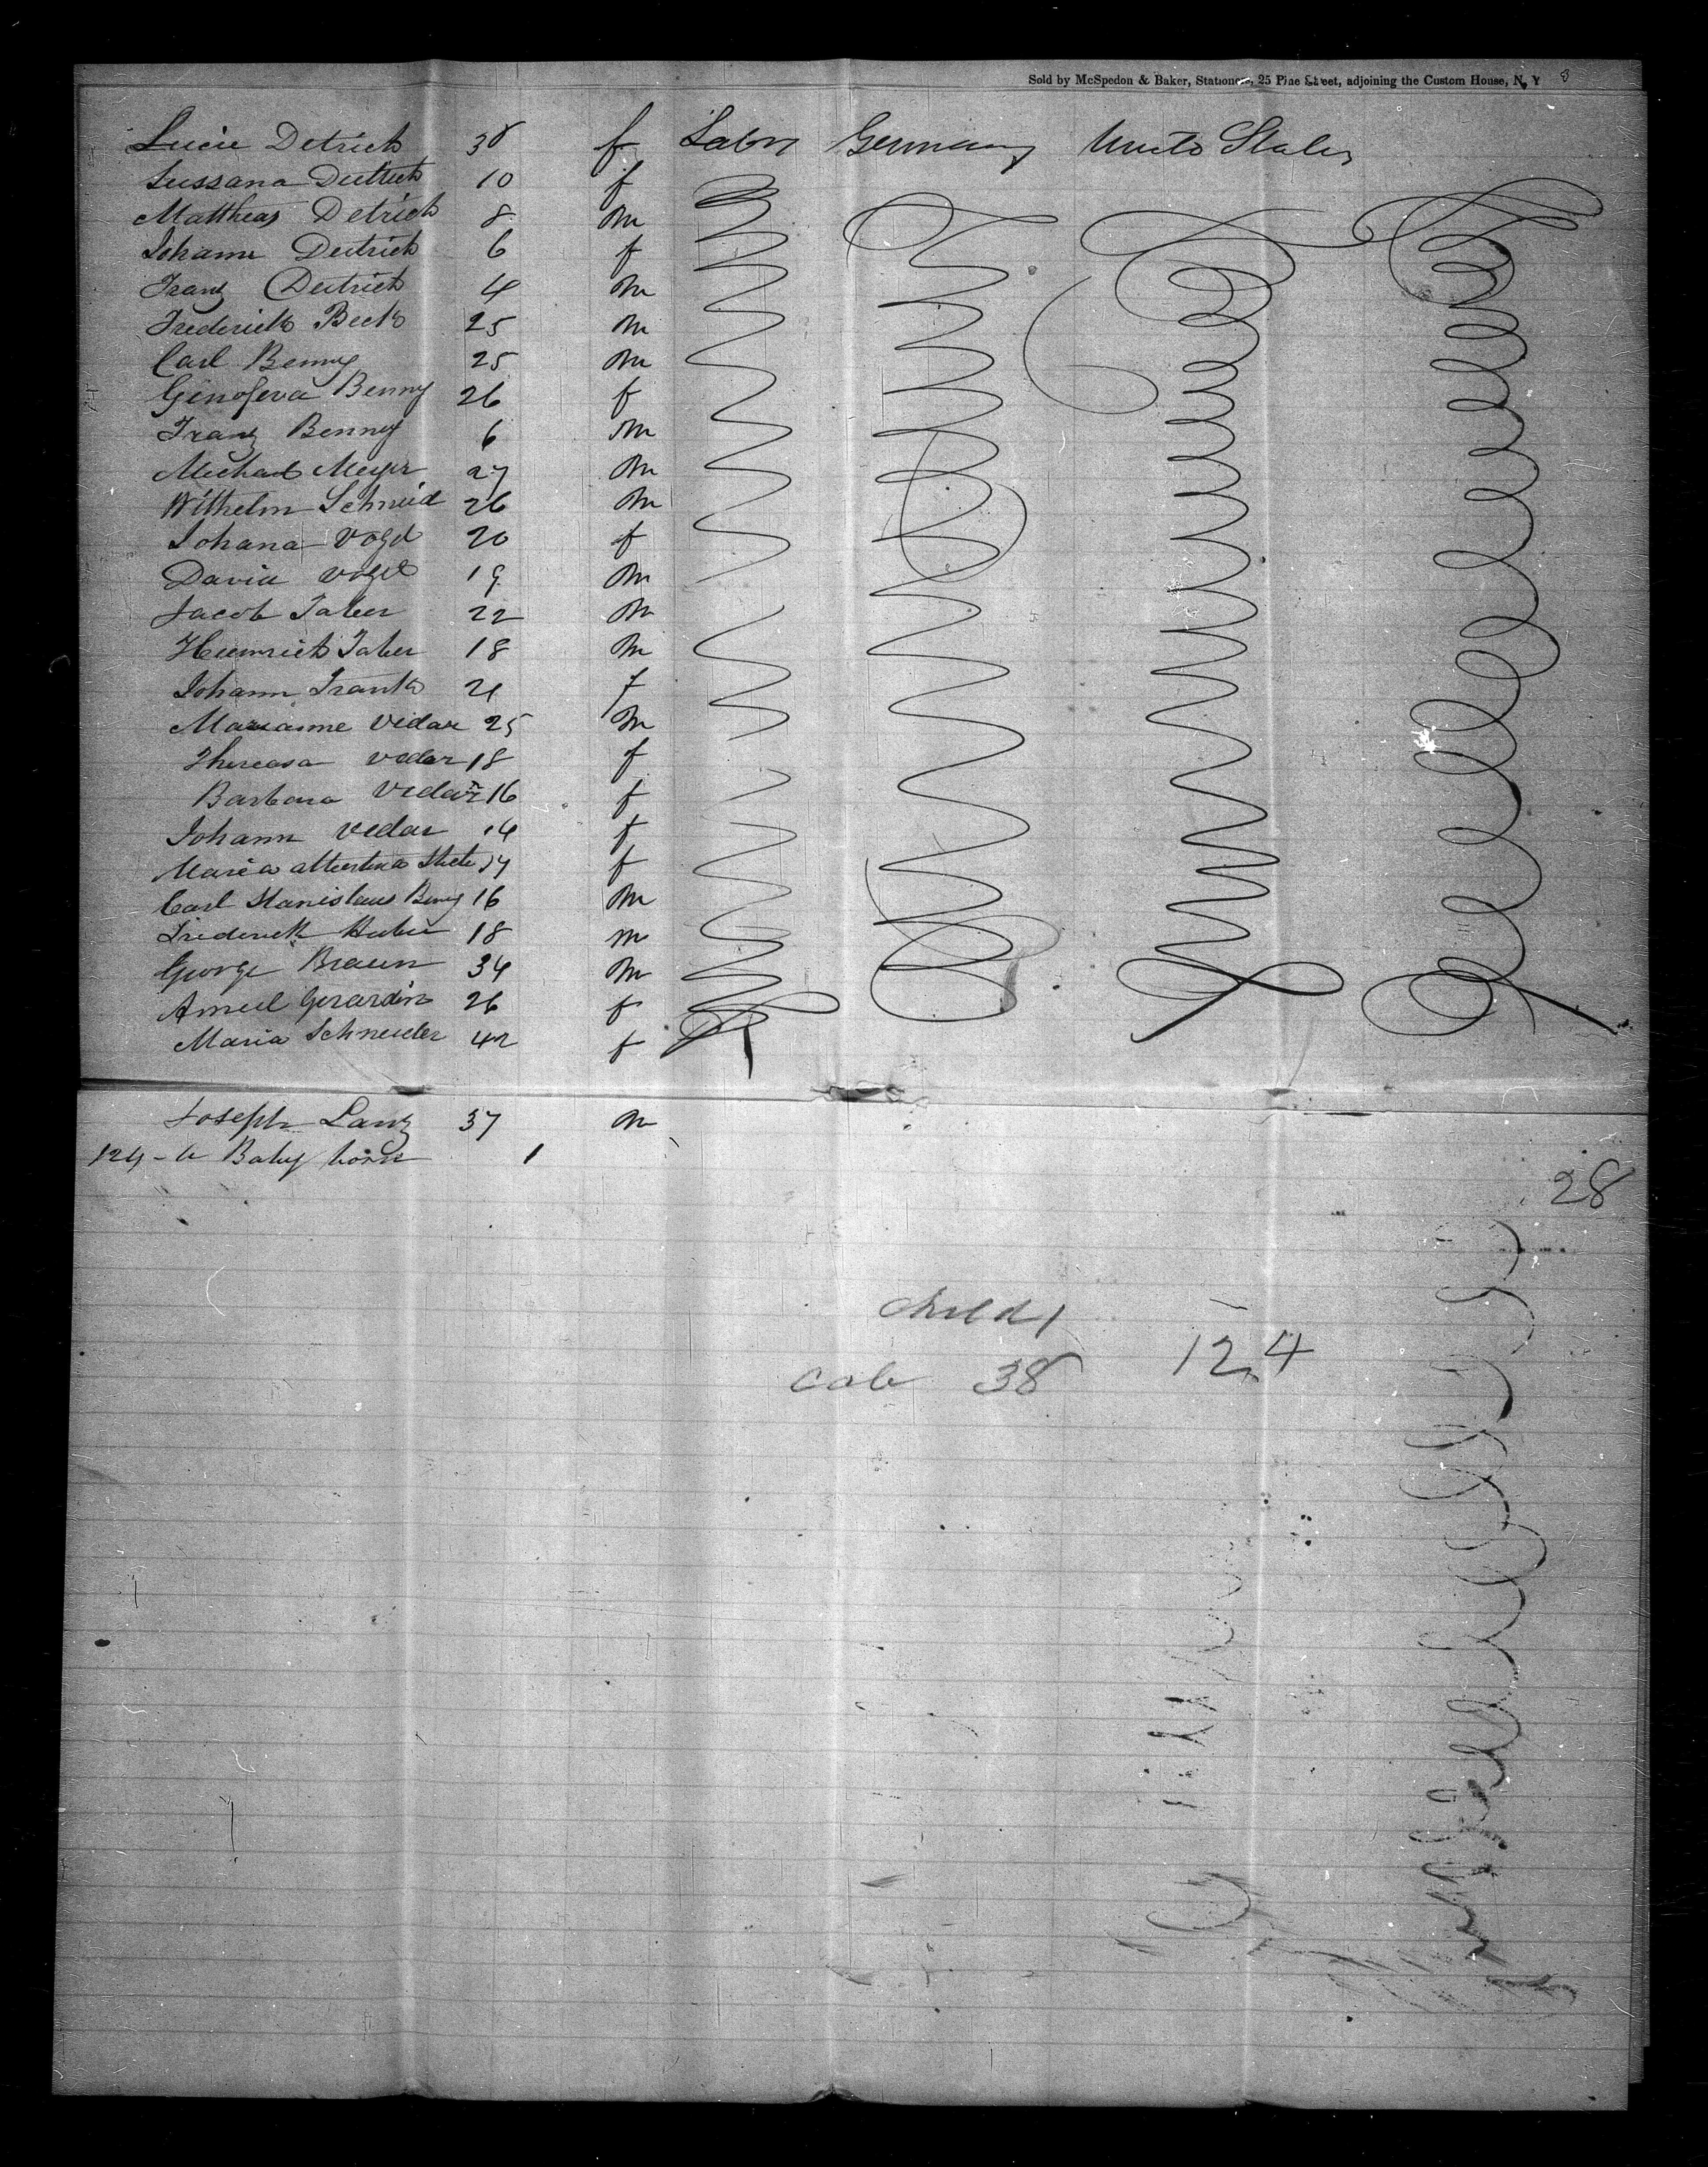 Sold by McSpedon & Baker, Stationers, 25 Pine Street, adjoining the Custom House, N, Y 8
Lucie Detrich 38 f Labor Germany Unito States
Sussana Deitrich 10 f
Matthias Detrich 8 m
Johann Deitrich 6 f
Franz Deitrich 4 m
Frederick Beck 25 m
Carl Benny 25 m
Genofeva Benny 26 f
Franz Benny 6 m
Michael Meyer 27 m
Wilhelm Schneid 26 m
Johana Vogel 20 f
David Vogel 19 m
Jacob Faber 22 m
Heinrich Faber 18 m
Johann Frank 21 f
Marianne Vidar 25 m
Thereasa Vedar 18 f
Barbara Vidar 16 f
Johann Vedar 14 f
Maria 14 f
Carl Stanislaus Benny 16 m
Friderick Huber 18 m
George Braun 34 m
Gerardin 26 f
Maria Schneider 42 f
Joseph Lanz 37 m
124 - a Baby born 1
28
child 1
cab 38 124